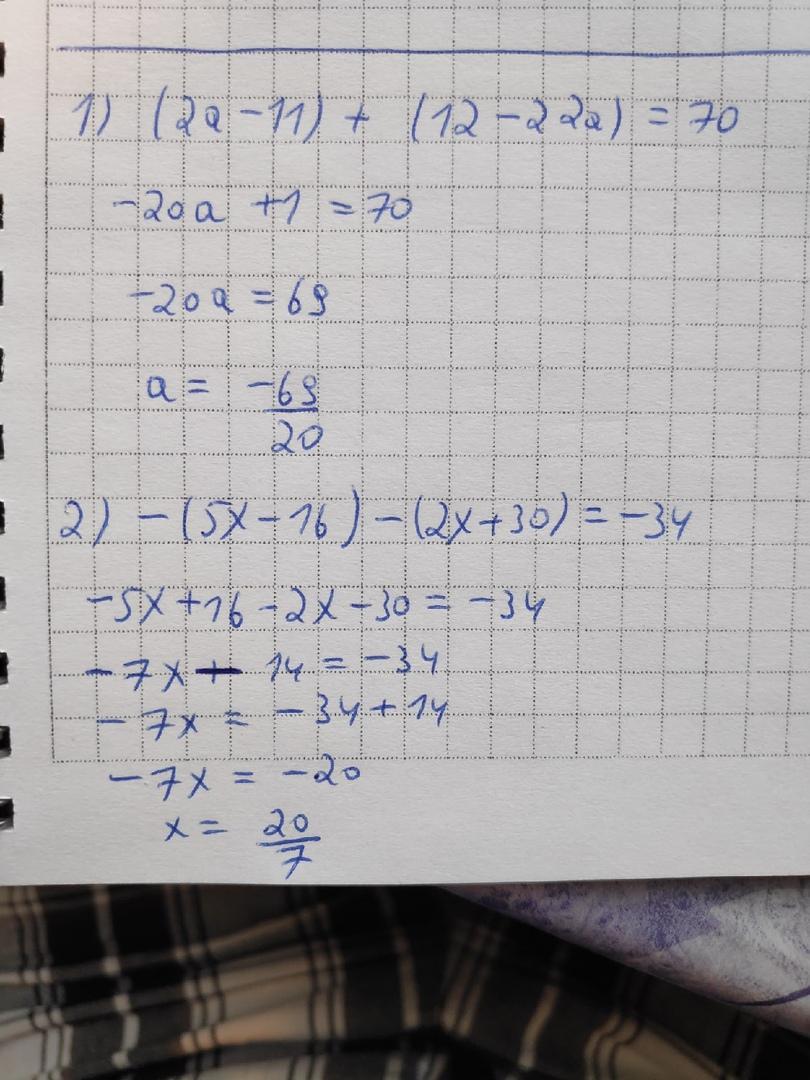 1) (2a - 11) + (12 - 22a) = 70
-20a + 1 = 70
-20a = 69
a = -69/20
2) - (5x - 16) - (2x + 30) = -34
-5x + 16 - 2x - 30 = -34
-7x - 14 = -34
-7x = -34 + 14
-7x = -20
x = 20/7